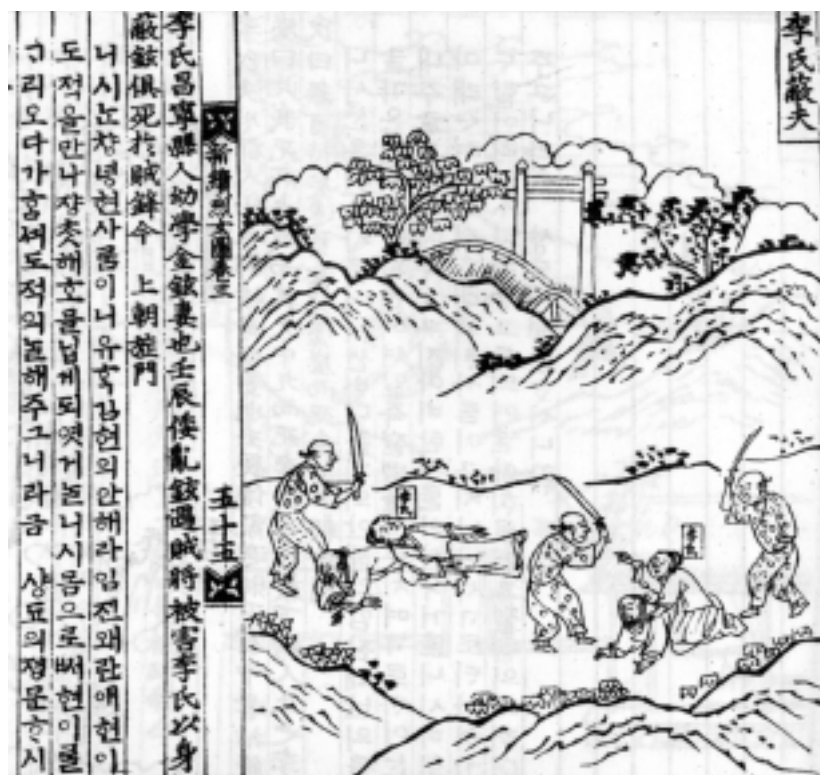 李氏蔽夫
李氏
李氏
新續烈女圖卷三
五十五
李氏昌寧縣人幼學金鉉妻也壬辰倭亂鉉遇賊將被害李氏以身
蔽鉉俱死於賊鋒今 上朝旌門
니시ᄂᆞᆫ챵녕현사ᄅᆞᆷ이니유ᄒᆞᆨ김현의안해라임진왜란애현이
도적을만나쟝ᄎᆞᆺ해호믈닙게되엿거ᄂᆞᆯ니시몸으로ᄡᅥ현이ᄅᆞᆯ
ᄀᆞ리오다가ᄒᆞᆷᄭᅴ도적의ᄂᆞᆯ해주그니라금 샹됴의졍문ᄒᆞ시